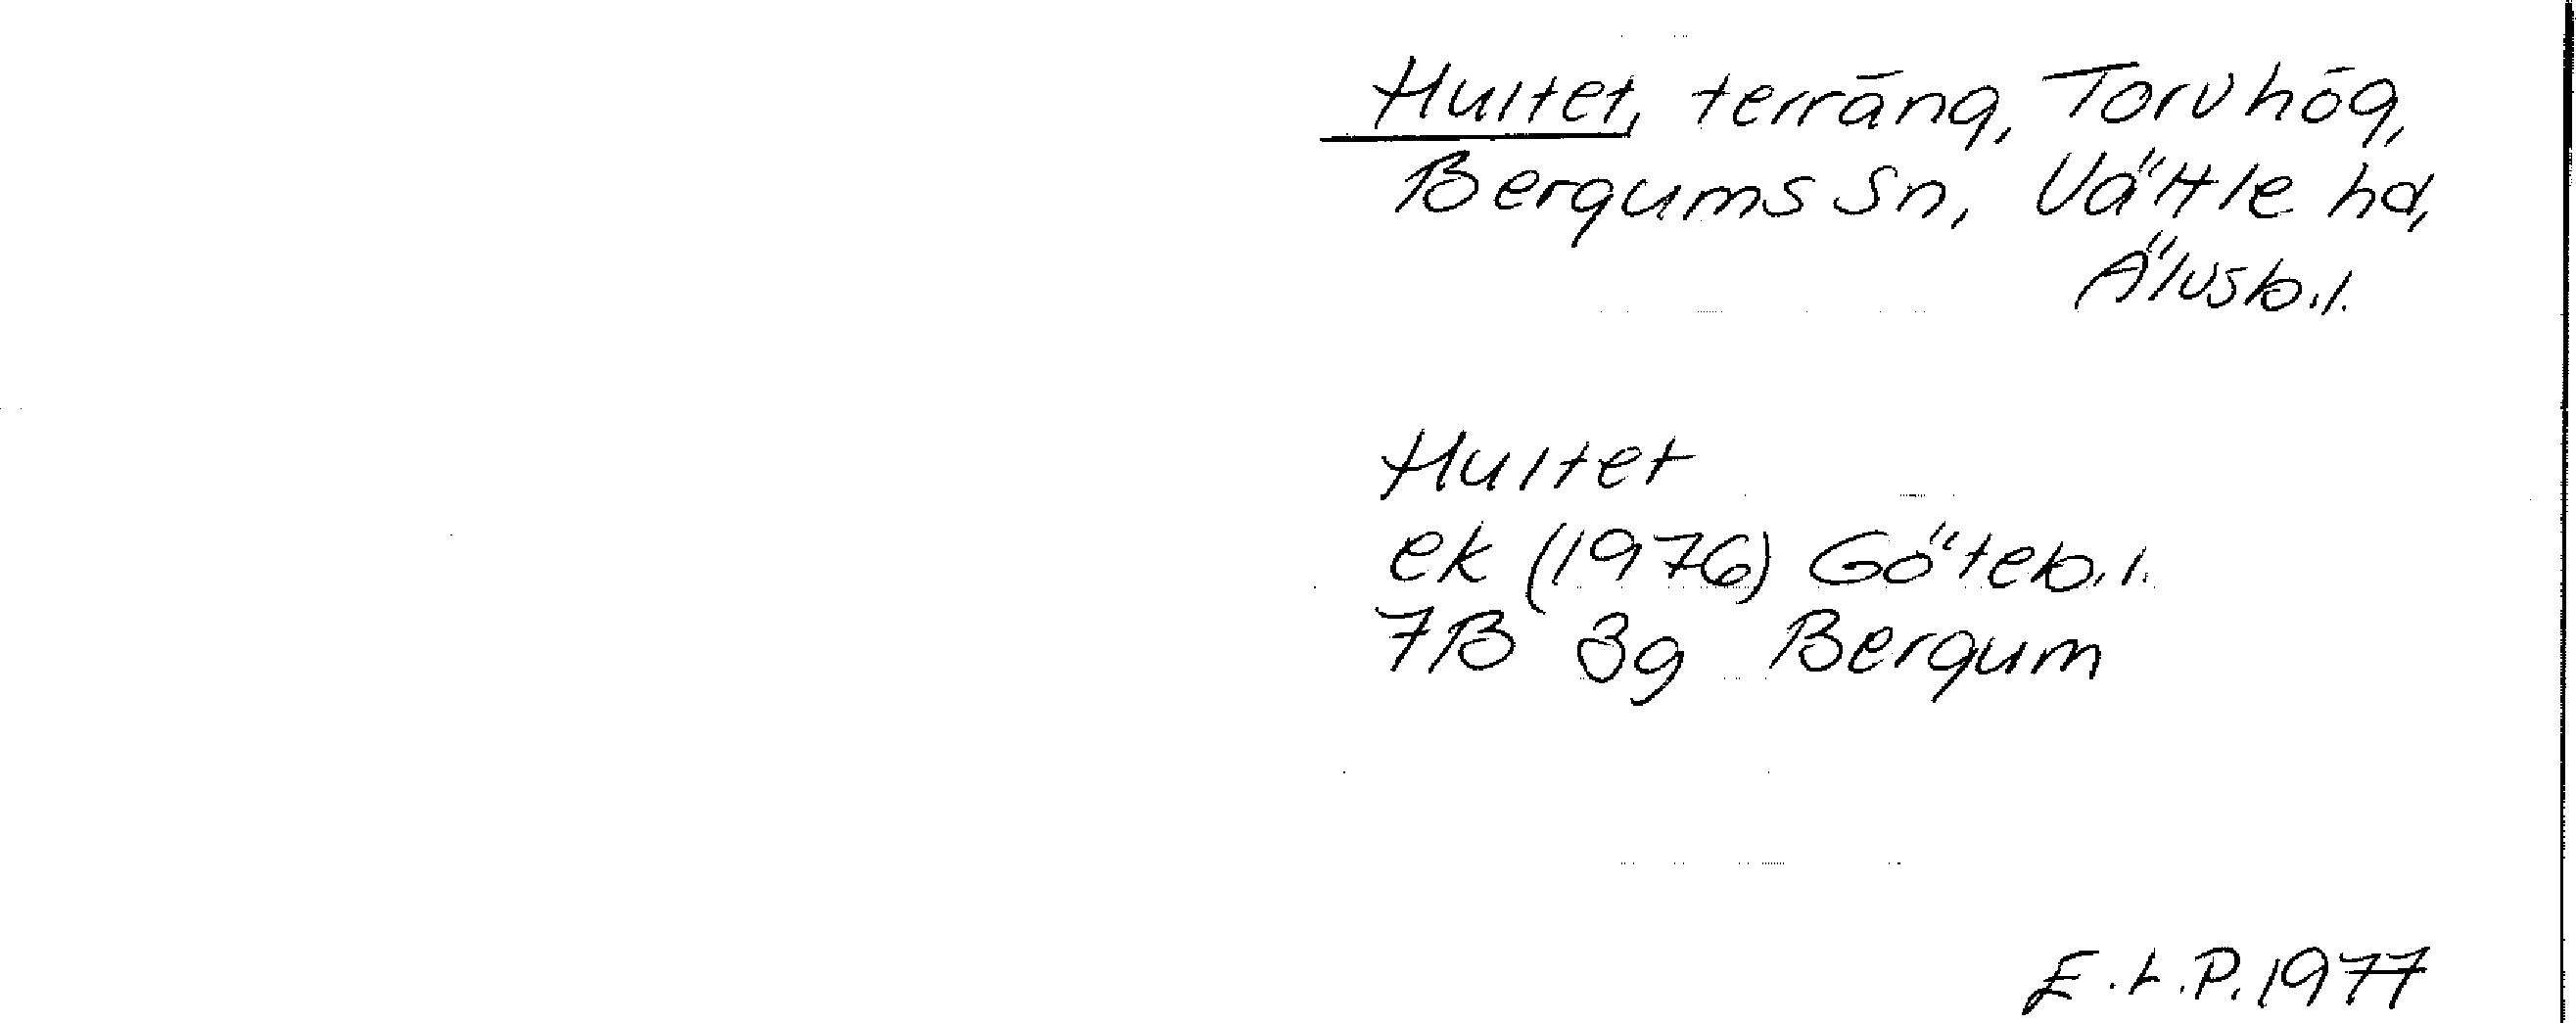 Hultet, terräng, Torvhög,
Bergums sn, Vättle hd,
Älvsb.l.
Hultet
ek (1976) Göteb.l.
7B 3g Bergum
E.L.P. 1977